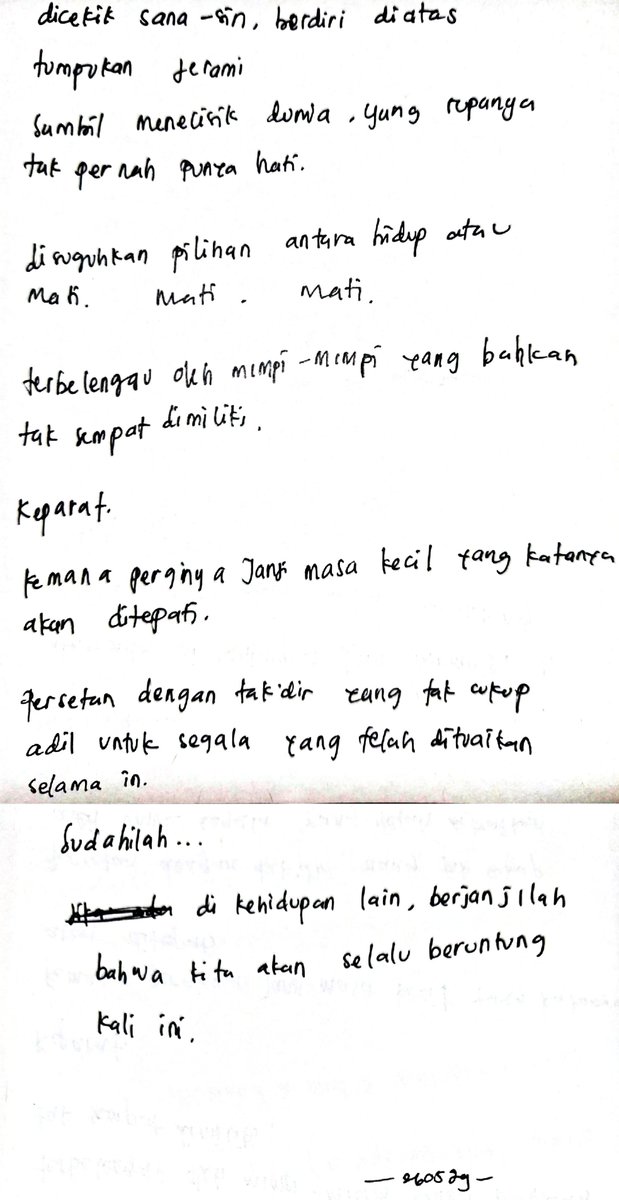 dicekik sana-sin, berdiri diatas
tumpukan jerami
sambil menelisik dunia, yang rupanya
tak pernah punya hati.
disuguhkan pilihan antara hidup atau
mati. mati. mati.
terbelenggu oleh mimpi-mimpi yang bahkan
tak sempat dimiliki.
Keparat.
kemana perginya Janji masa kecil yang katanya
akan ditepati.
persetan dengan takdir yang tak cukup
adil untuk segala yang telah dituaikan
selama ini.
Sudahilah...
di kehidupan lain, berjanjilah
bahwa kita akan selalu beruntung
kali ini.